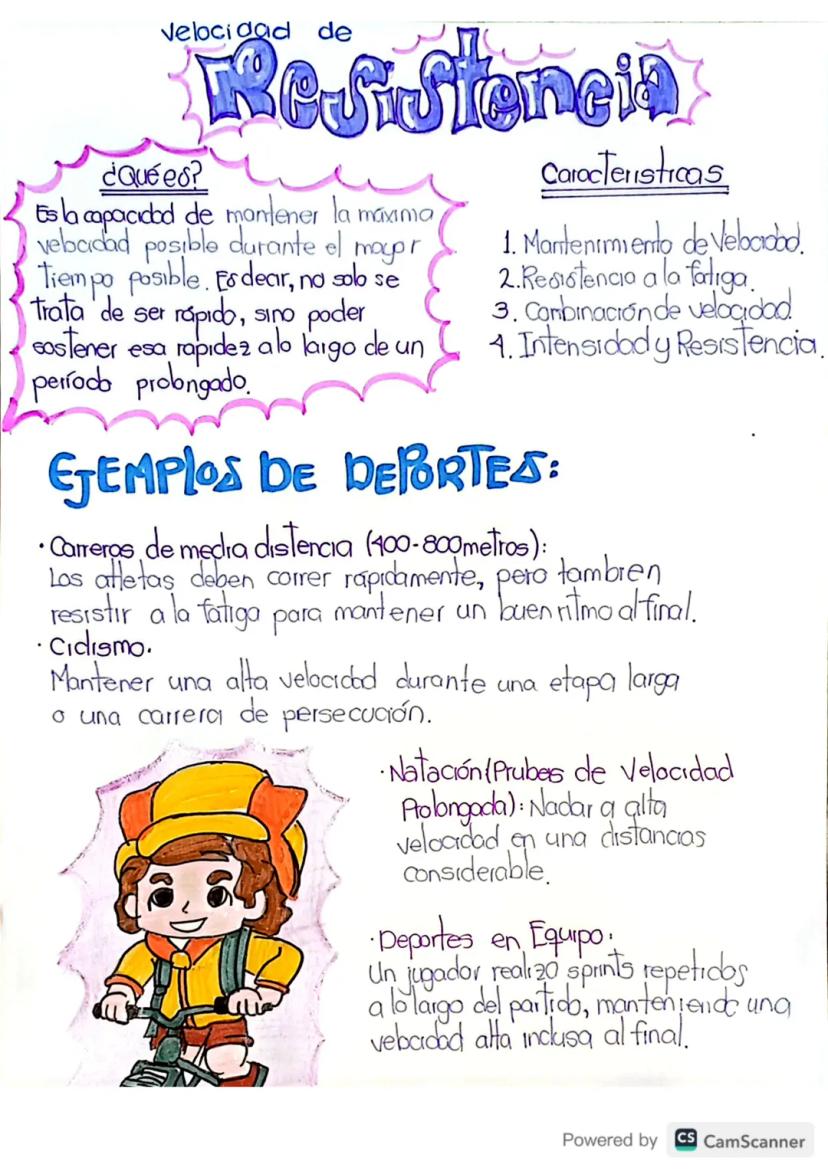 Velocidad de
Resistencia
¿Qué es?
Es la capacidad de mantener la máxima
velocidad posible durante el mayor
tiempo posible. Es decir, no solo se
trata de ser rápido, sino poder
sostener esa rapidez a lo largo de un
período prolongado.
Caracteristicas
1. Mantenimiento de Velocidad.
2. Resistencia a la fatiga.
3. Combinación de velocidad.
4. Intensidad y Resistencia.
EJEMPLOS DE DEPORTES:
· Carreras de media distancia (400-800 metros):
Los atletas deben correr rápidamente, pero tambien
resistir a la fatiga para mantener un buen ritmo al final.
· Ciclismo.
Mantener una alta velocidad durante una etapa larga
o una carrera de persecución.
· Natación (Prubes de Velocidad
Prolongada): Nadar a alta
velocidad en una distancias
considerable.
· Deportes en Equipo:
Un jugador realizo sprints repetidos
a lo largo del partido, manteniendo una
velocidad alta inclusa al final.
Powered by CS CamScanner